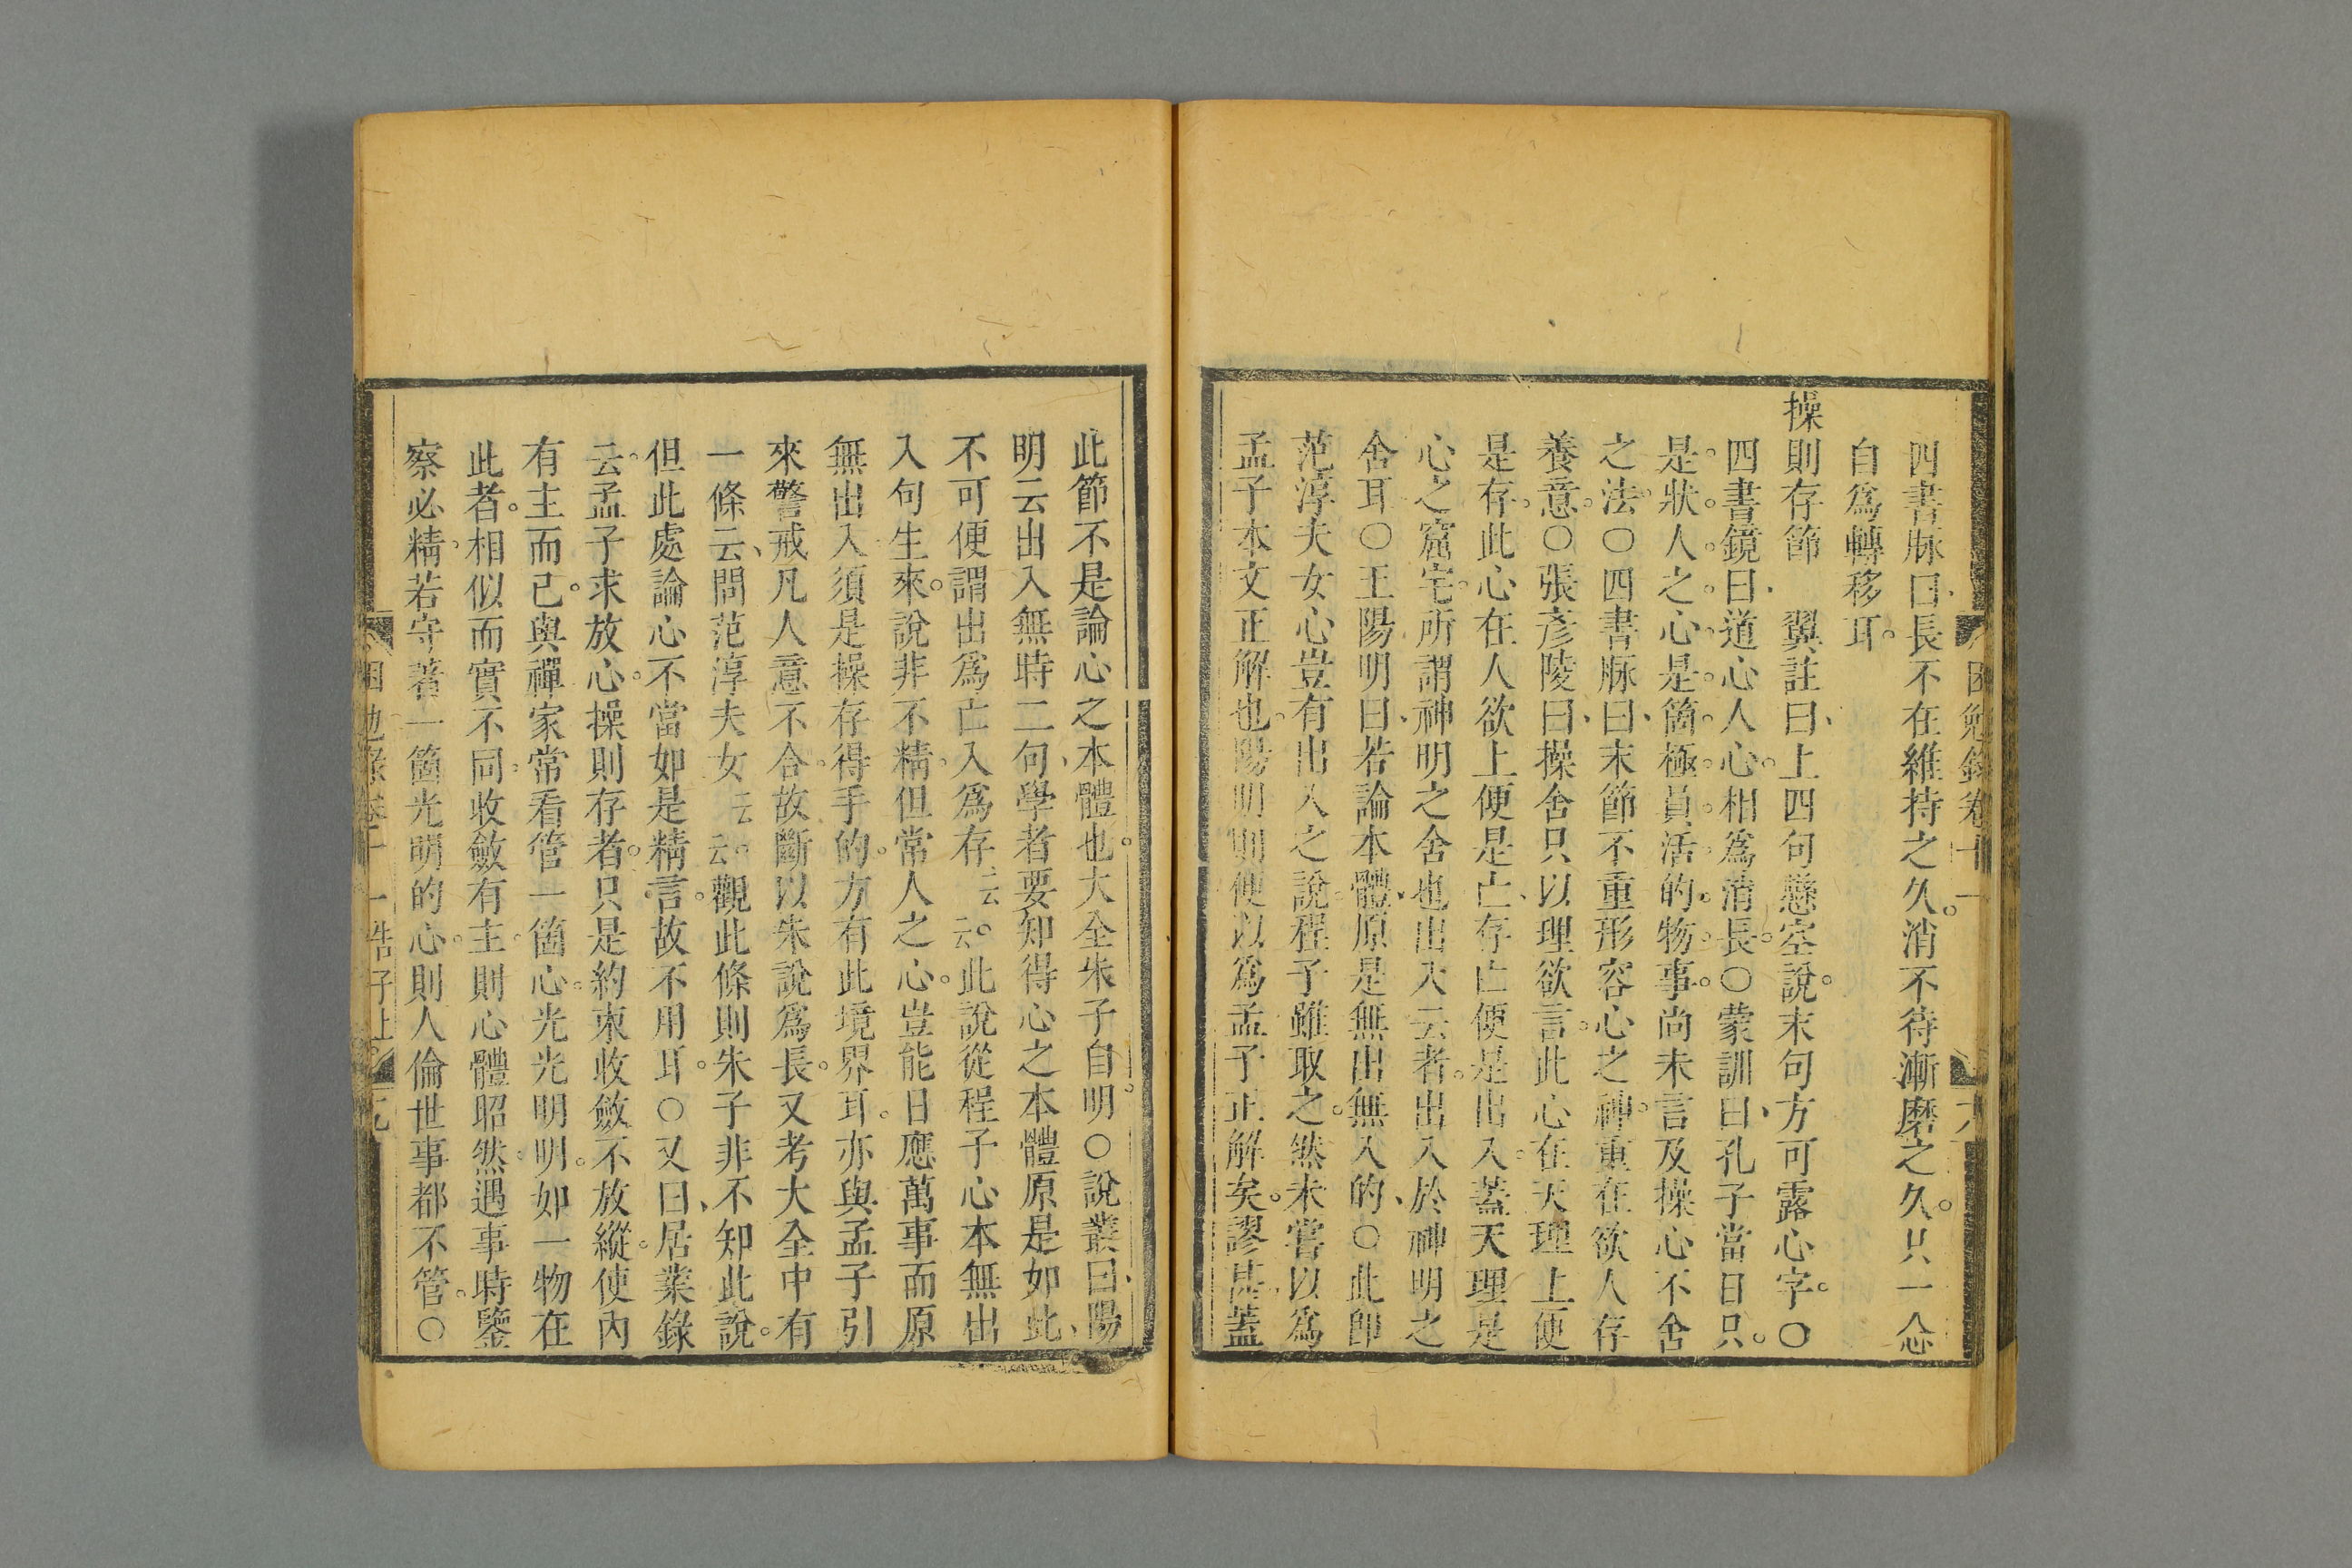 四書脉曰長不在維持之久消不待漸磨之久只一念
自爲轉移耳
操則存節　翼註曰上四句懸空說末句方可露心字○
四書鏡曰道心人心相爲消長○蒙訓曰孔子當日只
是狀人之心是箇極員活的物事尚未言及操心不舍
之法○四書脉曰末節不重形容心之神重在欲人存
養意○張彥陵曰操舍只以理欲言此心在天理上便
是存此心在人欲上便是亡存亡便是出入蓋天理是
心之窟宅所謂神明之舍也出入云者出入於神明之
舍耳○王陽明曰若論本體原是無出無入的○此卽
范淳夫女心豈有出入之說程子雖取之然未嘗以爲
孟子本文正解也陽明則便以爲孟子正解矣謬甚蓋
此節不是論心之本體也大全朱子自明○說叢曰陽
明云出入無時二句學者要知得心之本體原是如此
不可便謂出爲亡入爲存云云此說從程子心本無出
入句生來說非不精但常人之心豈能日應萬事而原
無出入須是操存得手的方有此境界耳亦與孟子引
來警戒凡人意不合故斷以朱說爲長又考大全中有
一條云問范淳夫女云云觀此條則朱子非不知此說
但此處論心不當如是精言故不用耳○又曰居業錄
云孟子求放心操則存者只是約束收斂不放縱使內
有主而已與禪家常看管一箇心光光明明如一物在
此者相似而實不同收斂有主則心體昭然遇事時鑒
察必精若守著一箇光明的心則人倫世事都不管○